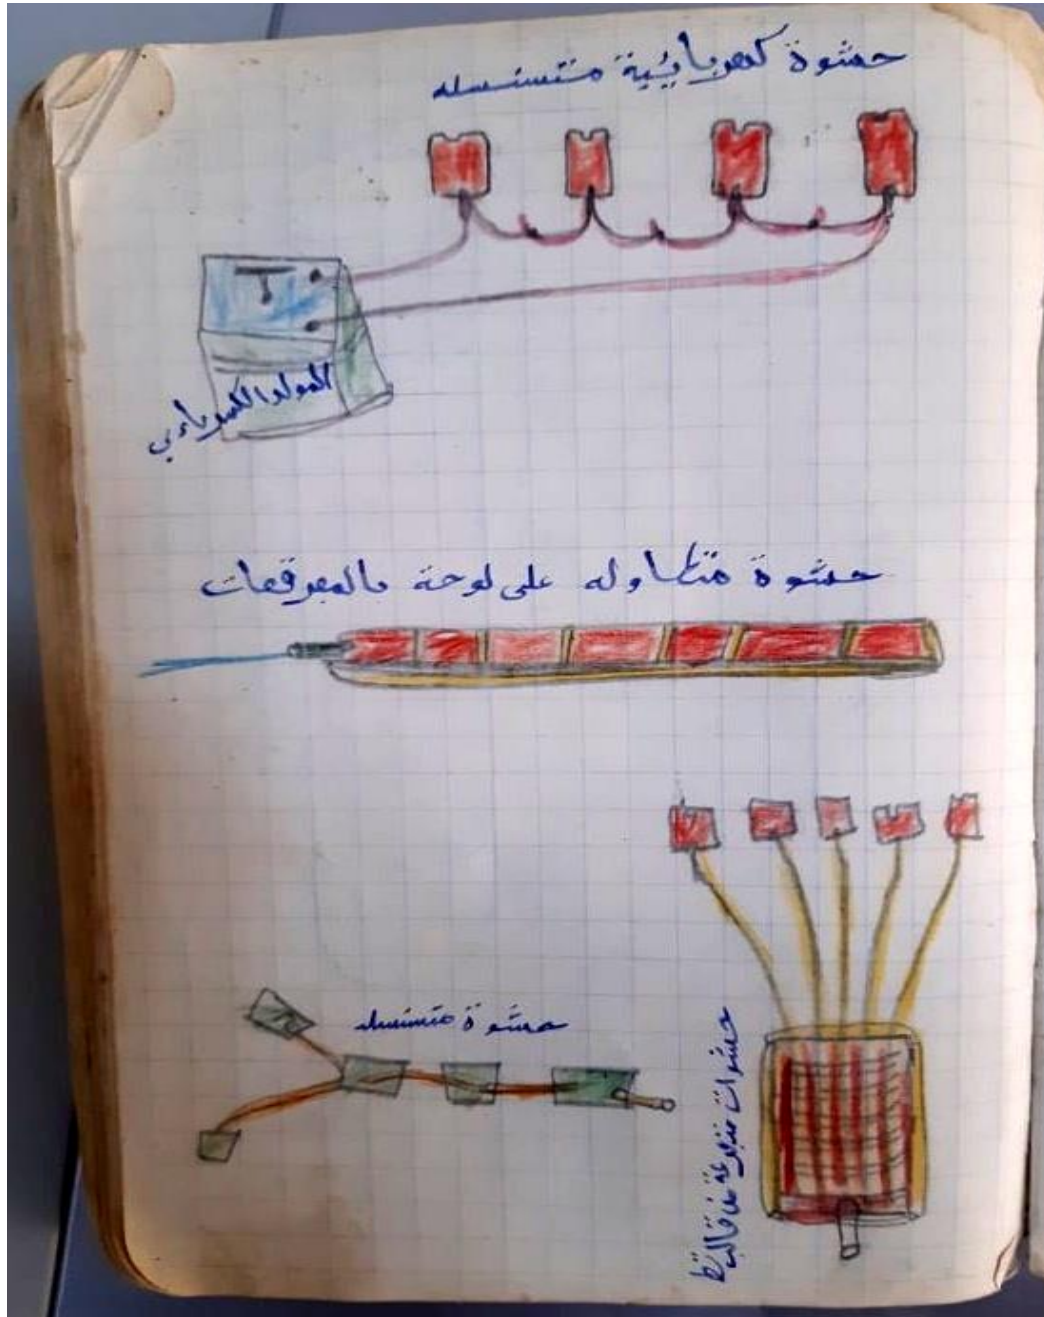 حشوة كهربائية متسلسله
المولد الكهربائي
حشوة متطاوله على لوحة بالمفرقعات
حشوة متسلسله
حشوات من قالب